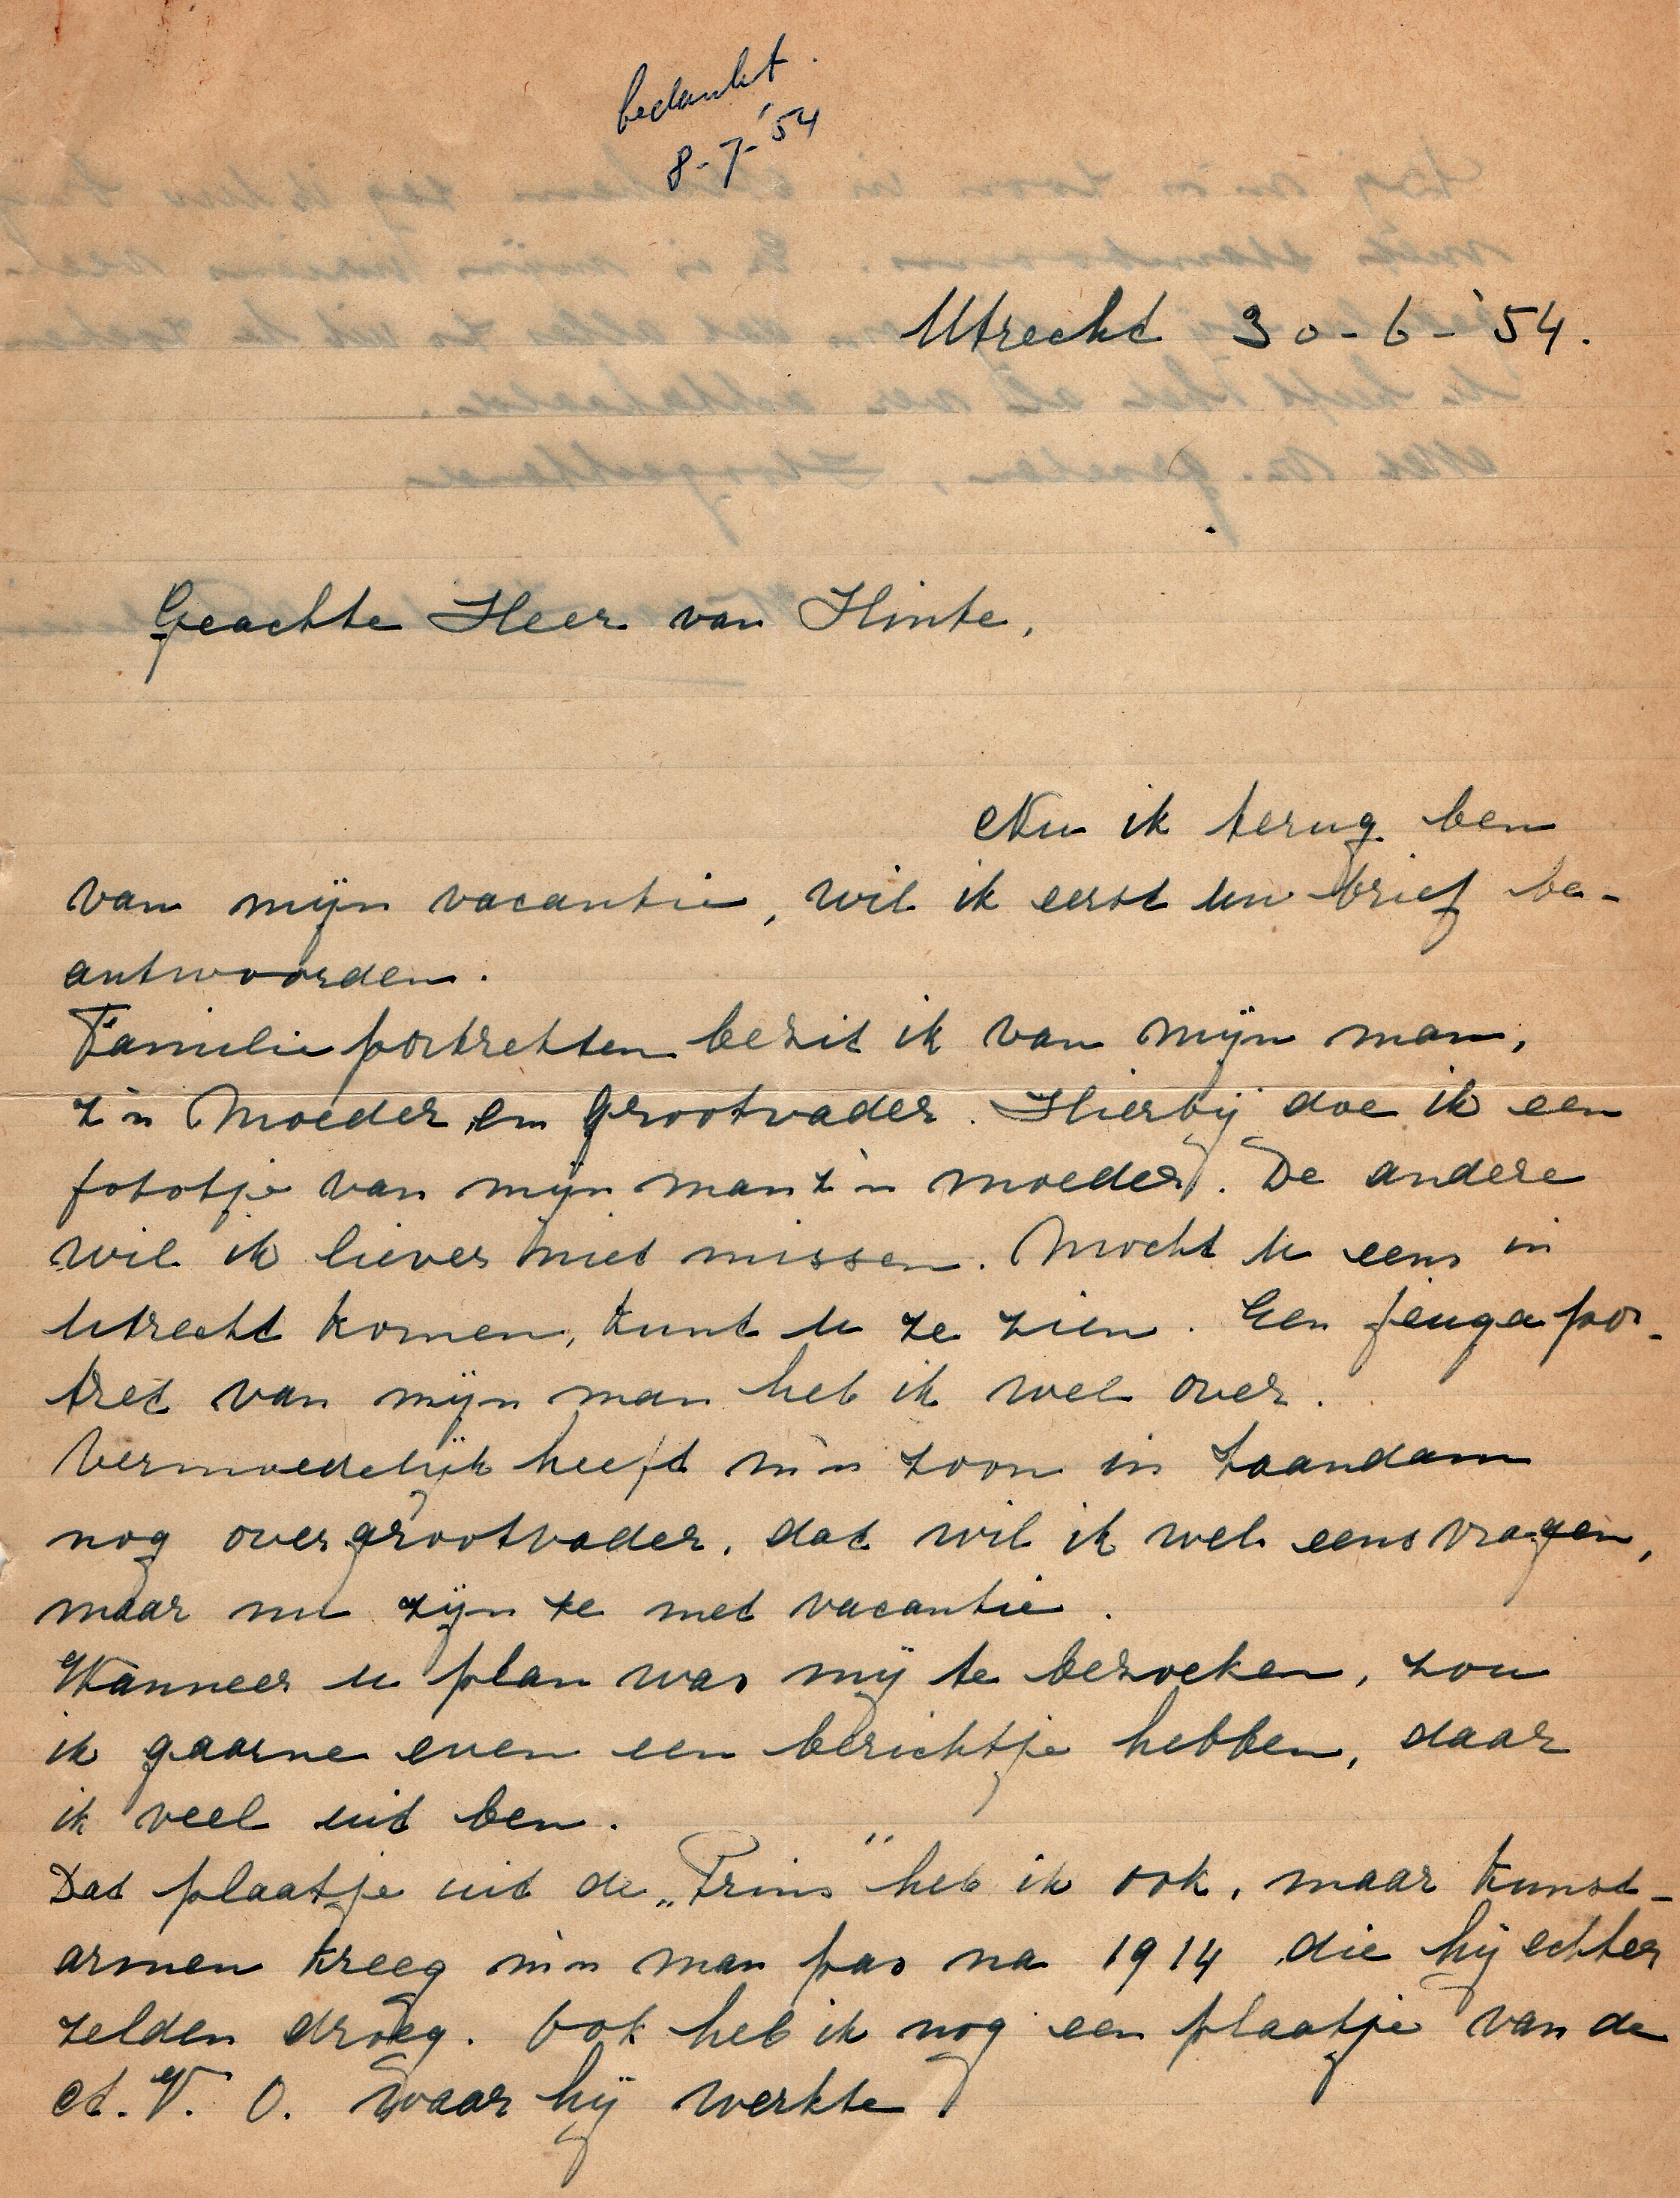 bedankt.
8-7-'54
Utrecht 30-6-'54.
Geachte Heer van Hinte,
Nu ik terug ben
van mijn vacantie, wil ik eerst uw brief be-
antwoorden.
Familie portretten bezit ik van mijn man,
z'n Moeder en Grootvader. Hierbij doe ik een
fototje van mijn man z'n moeder. De andere
wil ik liever niet missen. Mocht U eens in
Utrecht komen, kunt U ze zien. Een jeugd por-
tret van mijn man heb ik wel over.
Vermoedelijk heeft m'n zoon in Zaandam
nog over grootvader, dat wil ik wel eens vragen,
maar nu zijn ze met vacantie.
Wanneer u plan was mij te bezoeken, zou
ik gaarne even een berichtje hebben, daar
ik veel uit ben.
Dat plaatje uit de „Prins" heb ik ook, maar kunst-
armen kreeg m'n man pas na 1914 die hij echter
zelden droeg. Ook heb ik nog een plaatje van de
A.V.O. waar hij werkte.